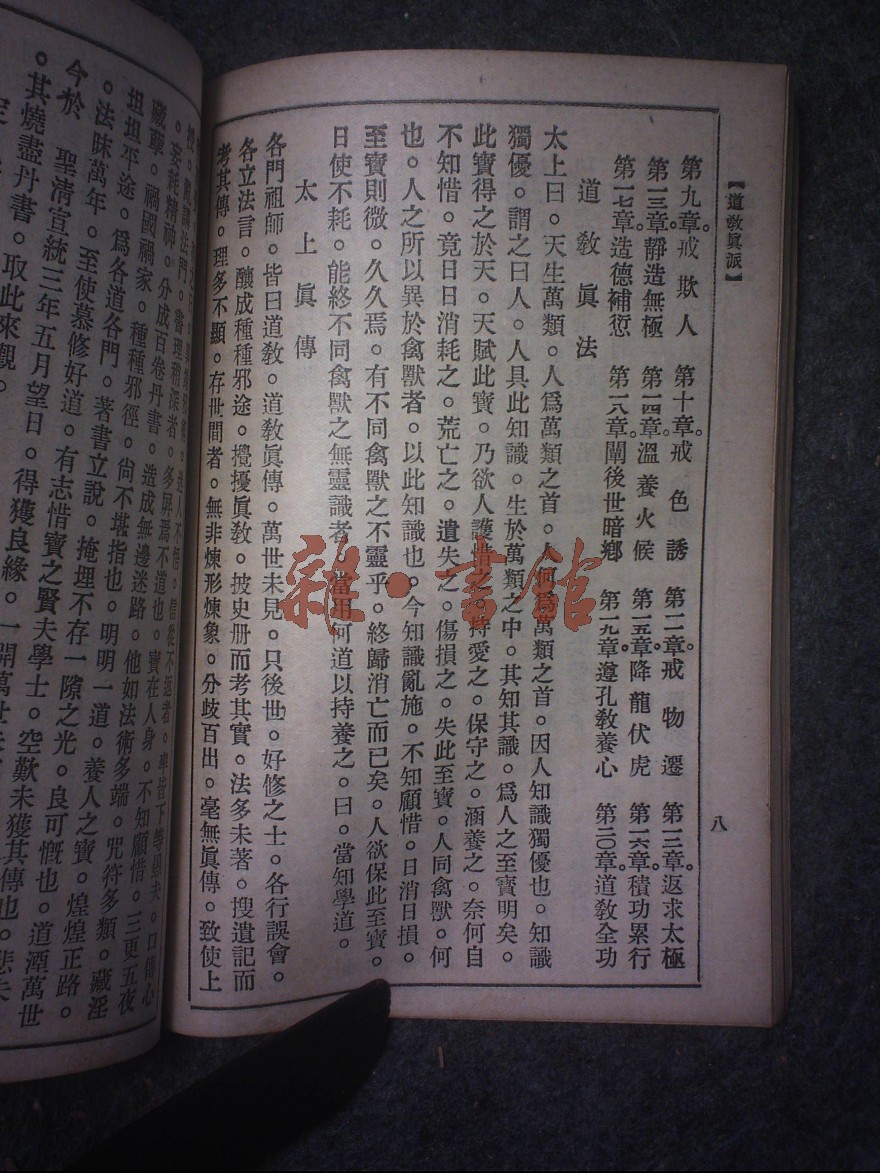 【道敎眞派】
八
第九章。戒欺人 第十章。戒色誘 第二章。戒物遷 第三章。返求太極
第一三章。靜造無極 第一四章。溫養火候 第一五章。降龍伏虎 第一六章。積功累行
第一七章。造德補愆 第一八章。闡後世暗鄉 第一九章。遵孔敎養心 第二〇章。道敎全功
道敎眞法
太上曰。天生萬類。人爲萬類之首。人何爲萬類之首。因人知識獨優也。知識
獨優。謂之曰人。人具此知識。生於萬類之中。其知其識。爲人之至寶明矣。
此寶得之於天。天賦此寶。乃欲人護惜之。持愛之。保守之。涵養之。奈何自
不知惜。竟日日消耗之。荒亡之。遺失之。傷損之。失此至寶。人同禽獸。何
也。人之所以異於禽獸者。以此知識也。今知識亂施。不知顧惜。日消日損。
至寶則微。久久焉。有不同禽獸之不靈乎。終歸消亡而已矣。人欲保此至寶。
日使不耗。能終不同禽獸之無靈識者。當用何道以持養之。曰。當知學道。
太上眞傳
各門祖師。皆曰道敎。道敎眞傳。萬世未見。只後世。好修之士。各行誤會。
各立法言。釀成種種邪途。攪擾眞敎。披史册而考其實。法多未著。搜遺記而
考其傳。理多不顯。存世間者。無非煉形煉象。分歧百出。毫無眞傳。致使上
。妄耗精神。分成百卷丹書。造成無邊迷路。他如法術多端。咒符多類。藏淫
藏孽。禍國禍家。種種邪徑。尙不堪指也。明明一道。養人之寶。煌煌正路。
坦坦平途。爲各道各門。著書立說。掩埋不存一隙之光。良可慨也。道湮萬世
。法昧萬年。至使慕修好道。有志惜寶之賢夫學士。空歎未獲其傳也。悲夫
今於 聖清宣統三年五月望日。得獲良緣。一開萬世
。其燒盡丹書。取此來觀。
雜·書館